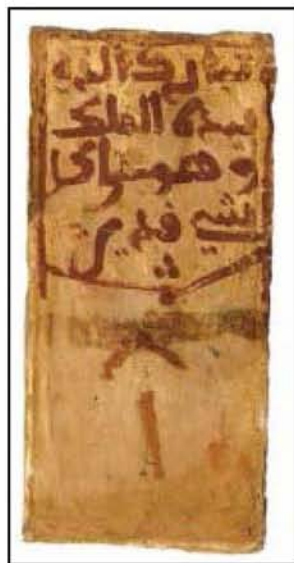 تبارك الذي
بيده الملك
وهو على
شي قدير